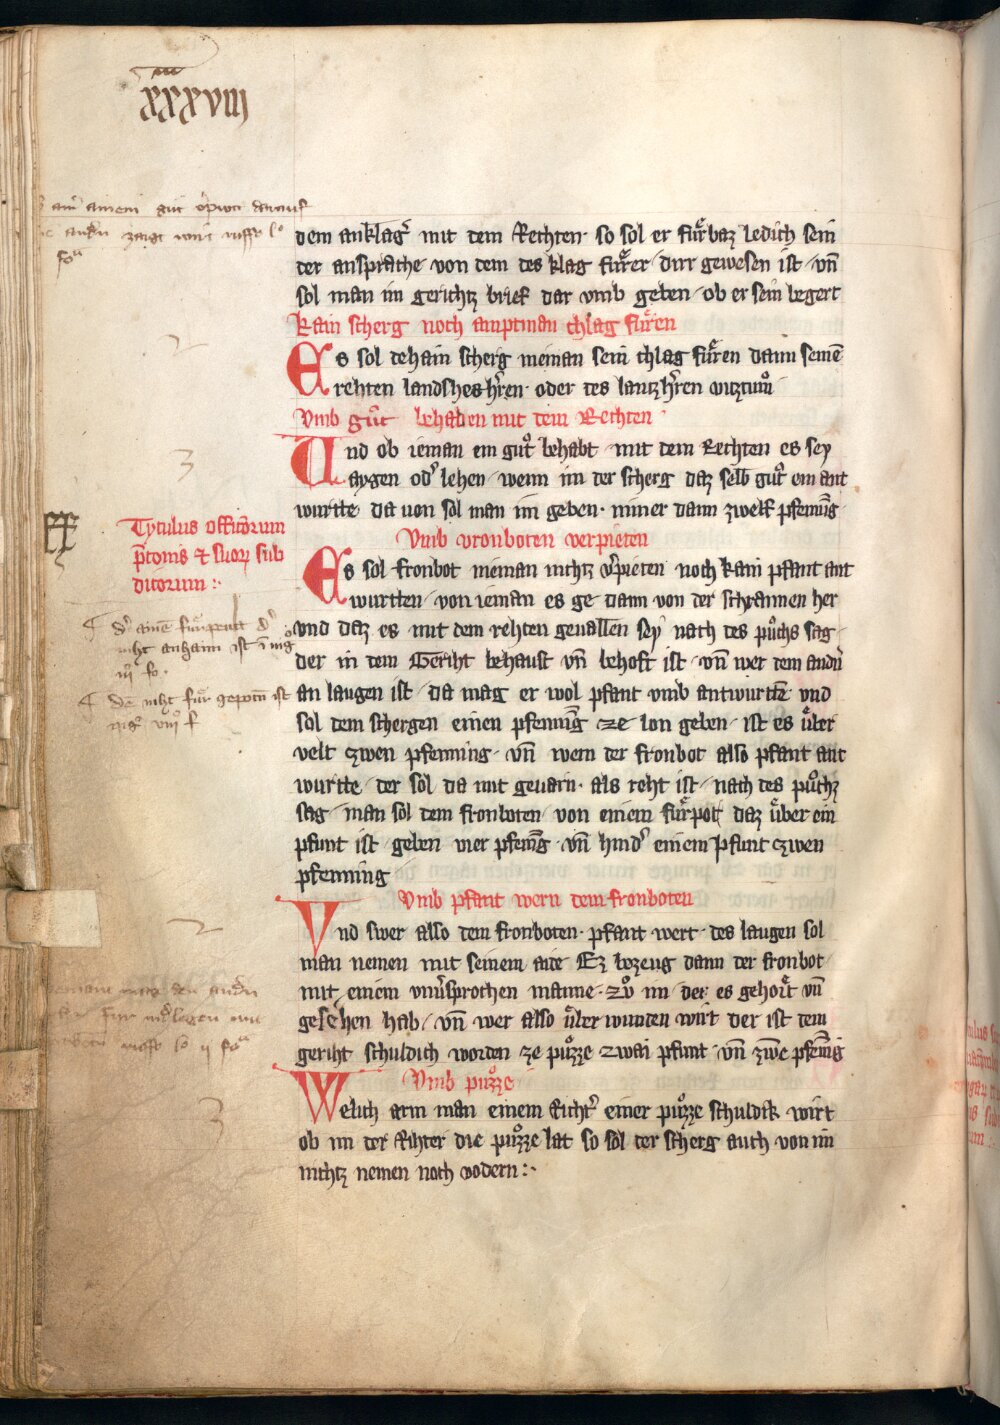 xxxviij
dem anklag̕ mit dem Rechten· so sol er fuͤrbaz ledich sein
der ansprache· von dem des klag fuͤrer· dirr gewesen ist· vn̄
sol man im gerichtz brief dar vmb geben· ob er sein begert
Kain scherg noch amptman chlag fuͤren
Es sol dehain scherg nieman sein chlag fuͤren dann seinē
rehten landshesh̕ren· oder des lantzh̕ren viztumͦ
Vmb guͤt behaben mit dem Rechten·
Und ob ieman ein guͦt behabt· mit dem Rechten es sey
aygen od̕ lehen· wenn im der scherg daz selb guͦt ein ant
wurtte· da von sol man im geben· minner dann zwelf pfennīg·
Vmb vronboten verpieten
Tytulus officiorum
p̄conis & suoꝝ sub
ditorum :·
Es sol fronbot nieman nichtz v̕pieten· noch kain pfant ant
wurtten· von ieman es ge dann von der schrannen her
vnd daz es mit dem rehten geuallen sey· nach des puͦchs sag·
der in dem Geriht behaust vn̄ behoft ist· vn̄ wer dem andn̄
an laugen ist· da mag er wol pfant vmb antwurttē· vnd
sol dem schergen einen pfennīg ze lon geben· ist es uͤber
velt zwen pfenning· vn̄ wem der fronbot also pfant ant
wurtte· der sol da mit geuarn· als reht ist· nach des puͦchz
sag· man sol dem fronboten· von einem fuͤrpot daz uͤber ein
pfunt ist· geben vier pfennīg· vn̄ hind̕ einem pfunt zwen
pfenning
Vmb pfant wern dem fronboten
Vnd swer also dem fronboten· pfant wert· des laugen sol
man nemen mit seinem aide· Ez bezeug dann der fronbot·
mit einem vnu̕sprochen manne· zuͦ im· der es gehoͤrt vn̄
gesehen hab· vn̄ wer also uͤber wunden wirt der ist dem
geriht schuldich worden ze puͦzze zwai pfunt· vn̄ zwē pfennīg
Vmb puͦzze
Welich arm man einem Richt̕ einer puͦzze schuldik wirt
ob im der Rihter die puͦzze lat so sol der scherg auch von im
nichtz nemen noch vodern :·